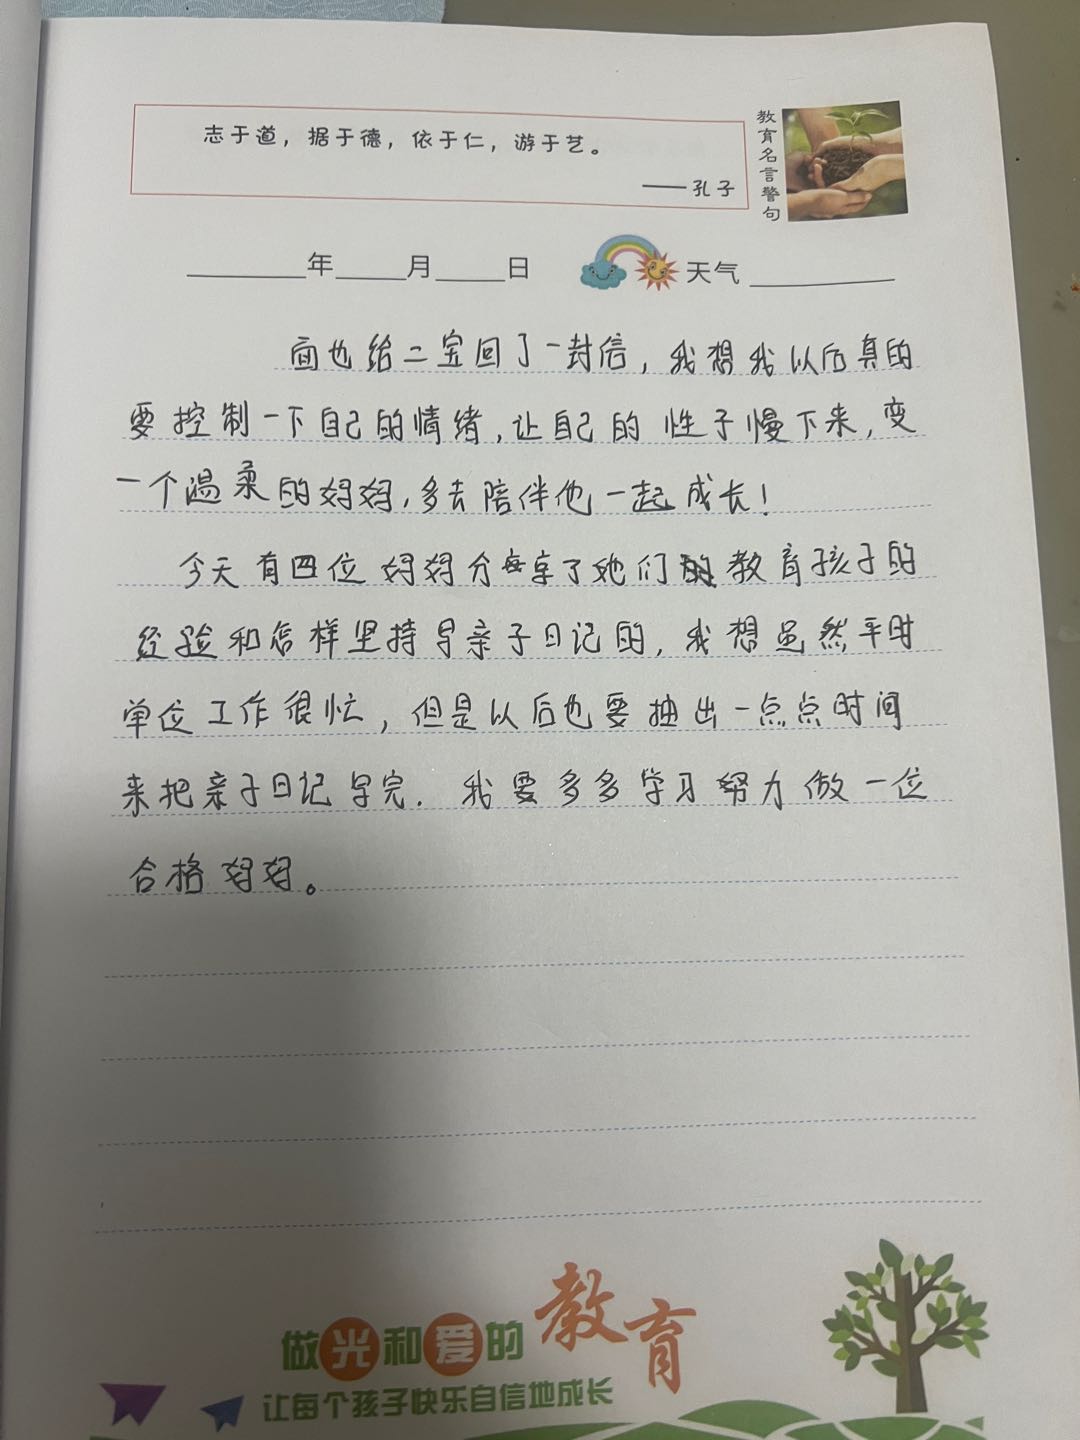 志于道，据于德，依于仁，游于艺。
——孔子
教育名言警句
年 月 日 天气
面也给二宝回了一封信，我想我以后真的
要控制一下自己的情绪，让自己的性子慢下来，变
一个温柔的妈妈，多去陪伴他一起成长！
今天有四位妈妈分享了她们的教育孩子的
经验和怎样坚持写亲子日记的，我想虽然平时
单位工作很忙，但是以后也要抽出一点点时间
来把亲子日记写完．我要多多学习努力做一位
合格妈妈。
做光和爱的教育
让每个孩子快乐自信地成长